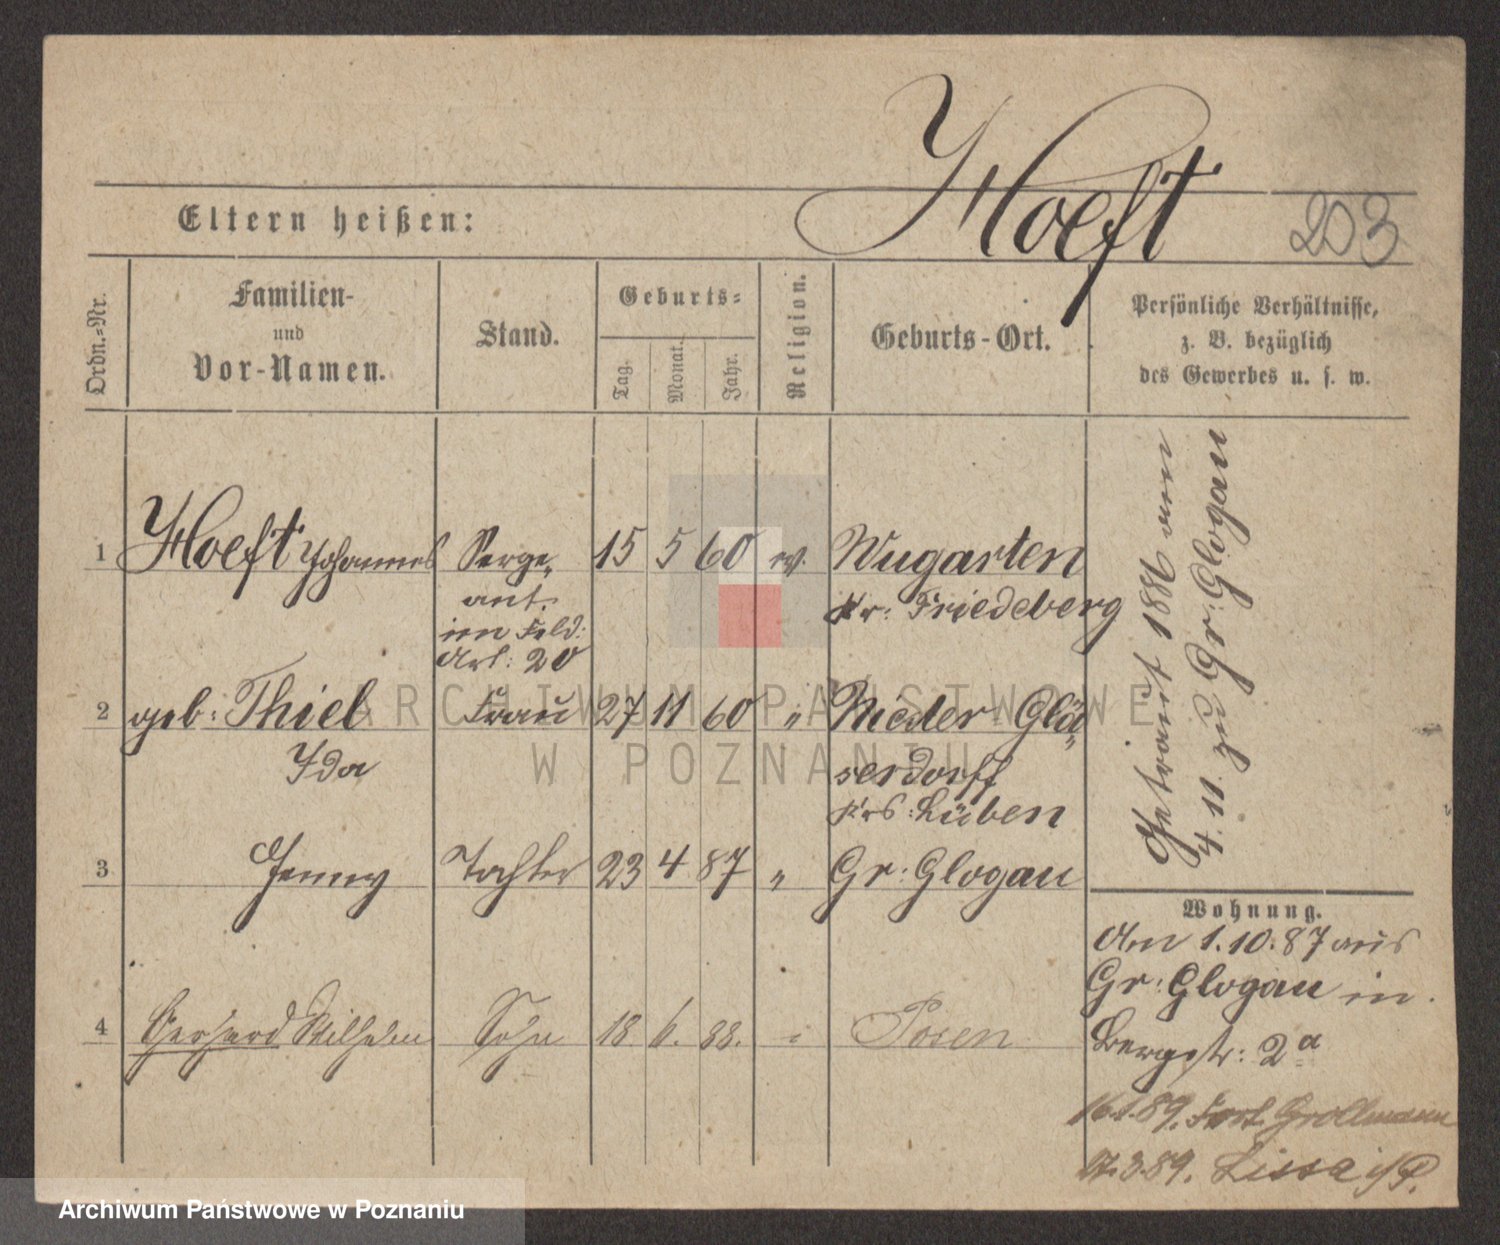 Hoeft
Eltern heißen:
203
Ordn.-Nr.
Familien-
und
Vor-Namen.
Stand.
Geburts-
Tag.
Monat.
Jahr.
Religion.
Geburts-Ort.
Persönliche Verhältnisse,
z. B. bezüglich
des Gewerbes u. s. w.
1 Hoeft Johannes Serge- 15 5 60 ev. Wugarten
ant. Kr: Friedeberg
im Feld:
Art: 20
2 geb: Thiel Frau 27 11 60 " Nieder Glä-
Ida serdorff
Krs: Lüben
3 Jenny Tochter 23 4 87 " Gr: Glogau
4 Gerhard Wilhelm Sohn 18. 6. 88. " Posen
Getraut 1886 am
4. 11. zu Gr: Glogau
Wohnung.
Am 1. 10. 87 aus
Gr: Glogau in
Bergstr: 2a
89. Fort Grollmann
3.89. Lissa i/P.
ARCHIWUM PAŃSTWOWE
W POZNANIU
Archiwum Państwowe w Poznaniu